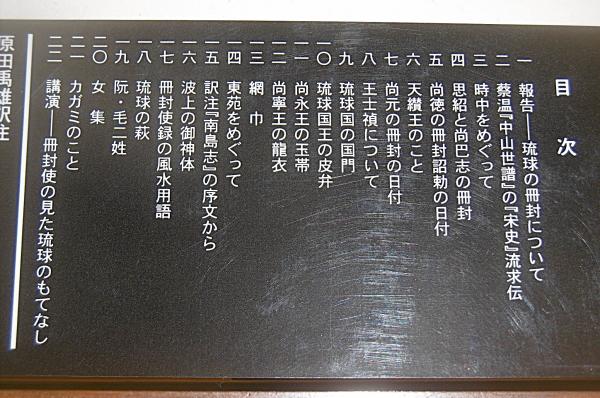 目次
一 報告――琉球の冊封について
二 蔡温『中山世譜』の『宋史』流求伝
三 時中をめぐって
四 思紹と尚巴志の冊封
五 尚徳の冊封詔勅の日付
六 天纘王のこと
七 尚元の冊封の日付
八 王士禎について
九 琉球国の国門
一〇 琉球国王の皮弁
一一 尚永王の玉帯
一二 尚寧王の龍衣
一三 網巾
一四 東苑をめぐって
一五 訳注『南島志』の序文から
一六 波上の御神体
一七 冊封使録の風水用語
一八 琉球の萩
一九 阮・毛二姓
二〇 女集
二一 カガミのこと
二二 講演――冊封使の見た琉球のもてなし
原田禹雄訳注